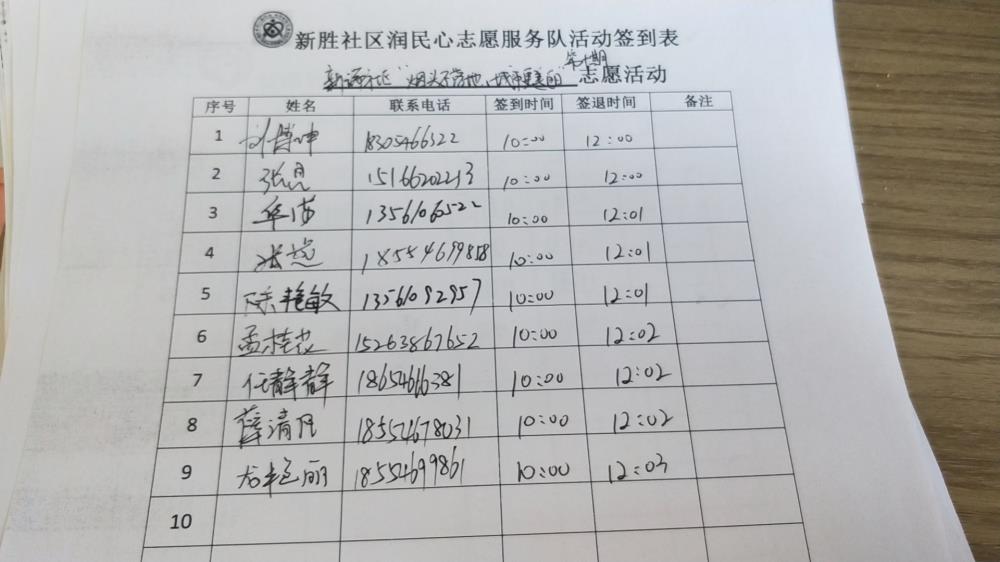 新胜社区润民心志愿服务队活动签到表
"烟头不落地,城市更美丽"第十期志愿活动
序号 姓名 联系电话 签到时间 签退时间 备注
1 18305466522 10:00 12:00
2 张 15166202213 10:00 12:00
3 13561060522 10:00 12:01
4 张 18554699858 10:00 12:01
5 陈艳敏 13561092957 10:00 12:01
6 孟桂花 15263867652 10:00 12:02
7 任静静 18654666381 10:00 12:02
8 薛清月 18554678031 10:00 12:02
9 艳丽 18554699861 10:00 12:03
10